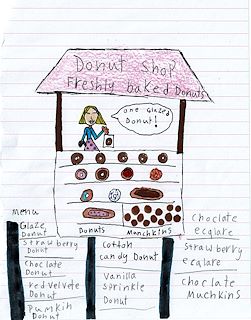 Donut Shop
Freshly baked Donuts
one Glazed
Donut!
Donuts
Munchkins
menu
Glaze
Donut
Strawberry
Donut
Choclate
Donut
red velvete
Donut
Pumkin
Donut
Cotton
candy Donut
Vanilla
Sprinkle
Donut
Choclate
ecqlare
Strawberry
eqalare
Choclate
Muchkins